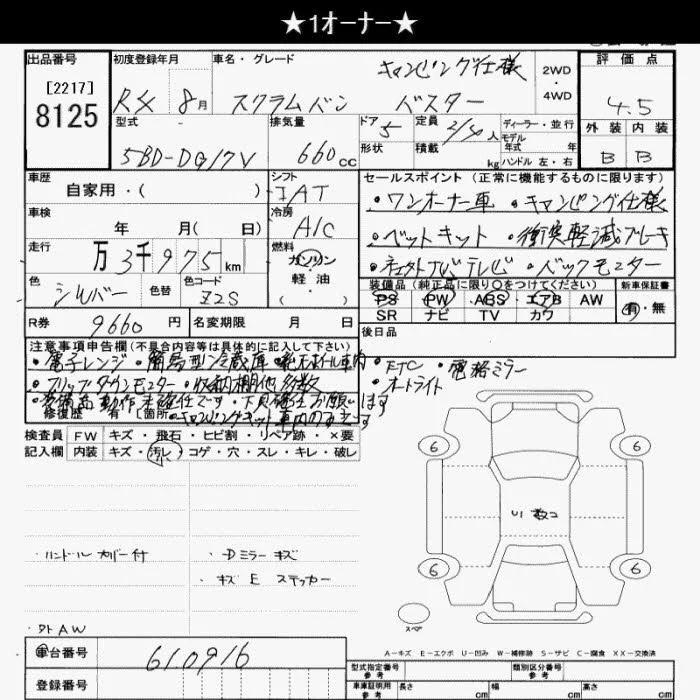 ★1オーナー★
出品番号 初度登録年月 車名・グレード キャンピング仕様 2WD 4WD 評価点
[2217]
8125 R4 8月 スクラムバン バスター 4.5
型式 排気量 ドア 定員 ディーラー・並行 外装 内装
5BD-DG17V 660cc 5 2/4人 モデル年式 年 B B
形状 積載 kg ハンドル 左・右
車歴 シフト セールスポイント(正常に機能するものに限ります)
自家用・( ) IAT ・ワンオーナー車 ・キャンピング仕様
車検 冷房
年 月( 日) A/C ・ベットキット ・衝突軽減ブレーキ
走行 燃料
万3千975km ガソリン・軽油・( ) ・ナビ テレビ ・バックモニター
色 色替 色コード 装備品(純正品に限り○をつけてください) 新車保証書
シルバー Z2S PS PW ABS エアB AW 有・無
SR ナビ TV カワ
R券 9660円 名変期限 月 日 後日品
注意事項申告欄(不具合内容等は具体的に記入して下さい)
・電子レンジ ・簡易型冷蔵庫 車内 ・ETC ・電格ミラー
・フリップダウンモニター ・収納棚他多数 ・オートライト
・装備品動作未確認です ・下見確認お願いします
修復歴 有( 箇所) ・キャンピングキット車内のみです
検査員 FW キズ・飛石・ヒビ割・リペア跡・×要
記入欄 内装 キズ・汚レ・コゲ・穴・スレ・キレ・破レ
小
6 6
U1 数コ
・ハンドルカバー付 ・Dミラーキズ
・キズ E ステッカー 6 6
・外AW スペア
A-キズ E-エクボ U-凹み W-補修跡 S-サビ C-腐食 XX-交換済
車台番号 610916
型式指定番号 参考 類別区分番号 参考
登録番号 車庫証明用 参考 長さ cm 幅 cm 高さ cm